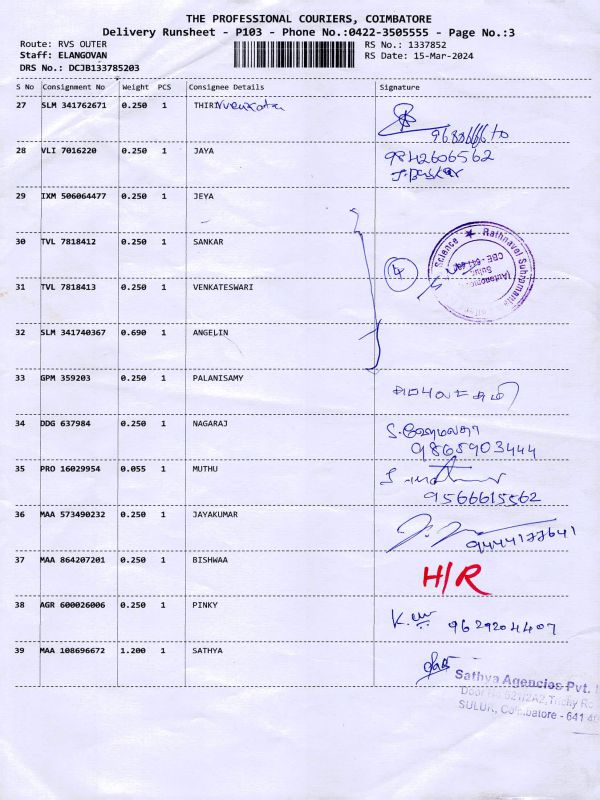 THE PROFESSIONAL COURIERS, COIMBATORE
Delivery Runsheet - P103 - Phone No.:0422-3505555 - Page No.:3
Route: RVS OUTER RS No.: 1337852
Staff: ELANGOVAN RS Date: 15-Mar-2024
DRS No.: DCJB133785203
S No Consignment No Weight PCS Consignee Details Signature
27 SLM 341762671 0.250 1
28 VLI 7016220 0.250 1 JAYA 9842606562
J.Baskar
29 IXM 506064477 0.250 1 JEYA
30 TVL 7818412 0.250 1 SANKAR
4
Science ★ Rathnavel Subramaniam
(Autonomous)
Sulur
31 TVL 7818413 0.250 1 VENKATESWARI
32 SLM 341740367 0.690 1 ANGELIN
33 GPM 359203 0.250 1 PALANISAMY
34 DDG 637984 0.250 1 NAGARAJ
9865903444
35 PRO 16029954 0.055 1 MUTHU
9566615562
36 MAA 573490232 0.250 1 JAYAKUMAR
9444177641
37 MAA 864207201 0.250 1 BISHWAA H/R
38 AGR 600026006 0.250 1 PINKY 9629204407
39 MAA 108696672 1.200 1 SATHYA
Sathya Agencies Pvt.
Door No 521/2A2, Trichy Ro
SULUR, Coimbatore - 641 40